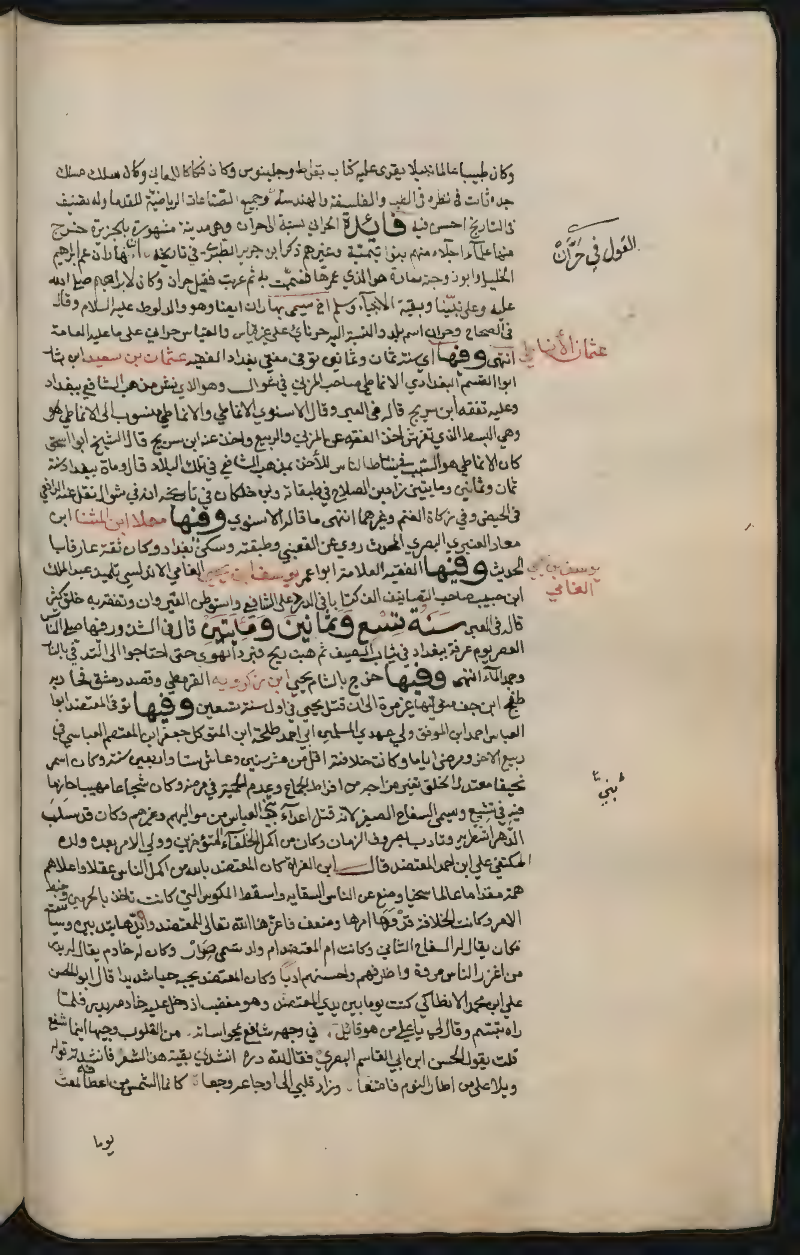 وكان طبيبا عالما نبيلا يقرى عليه كتاب بقراط وجالينوس وكان فكاكا للمعاني وكان سلك مسلك
جده ثابت في نظره في الطب والفلسفة والهندسة وجميع الصناعات الرياضية للقدما وله تصنيف
في التاريخ احسن فيه فائدة الحراني نسبة الى حران وهي مدينة مشهورة بالجزيرة خرج
القول في حران
منها علماء اجلاء منهم بنو تيمية وغيرهم ذكر ابن جرير الطبري في تاريخه ان هاران عم ابرهيم
الخليل وابو زوجته سارة هو الذي عمرها فسميت به ثم عربت فقيل حران وكان لابراهيم صلى الله
عليه وعلى نبينا وبقية الانبياء وسلم اخ يسمى بهاران ايضا وهو والد لوط عليه السلام وقال
في الصحاح وحران اسم بلد والنسبة اليه حرناني على غير قياس والقياس حراني على ما عليه العامة
عثمان الأنماطي
انتهى وفيها اي سنة ثمان وثمانين توفي مفتي بغداد الفقيه عثمان بن سعيد ابن بشار
ابو القسم البغدادي الانماطي صاحب المزني في شوال وهو الذي نشر مذهب الشافعي ببغداد
وعليه تفقه ابن سريج قاله في العبر وقال الاسنوي الانماطي والانماطي منسوب الى الانماط هو
وهي البسط الذي تفرش اخذ الفقه عن المزني والربيع واخذ عنه ابن سريج قال الشيخ ابو اسحق
كان الانماطي هو السبب في نشاط الناس للاخذ بمذهب الشافعي في تلك البلاد قال ومات ببغداد سنة
ثمان وثمانين ومايتين زاد ابن الصلاح في طبقاته وبن خلكان في تاريخه انه في شوال نقل عنه الرافعي
في الحيض وفي زكاة الغنم وغيرهما انتهى ما قاله الاسنوي وفيها معلا ابن المثنا ابن
معاد العنبري البصري المحدث روى عن القعنبي وطبقته وسكن بغداد وكان ثقة عارفا با
يوسف بن يحيى
المغامي
الحديث وفيها الفقيه العلامة ابو اعمر يوسف ابن يحيى المغامي الاندلسي تلميذ عبد الملك
ابن حبيب صاحب التصانيف الف كتابا في الرد على الشافعي واستوطن القيروان وتفقه به خلق كثير
قاله في العبر سنة تسع وثمانين ومايتين قال في الشذور فيها صلى الناس
العصر يوم عرفة ببغداد في ثياب الصيف ثم هبت ريح فبرد الهوى حتى احتاجوا الى التدفي بالنار
وجمد الماء انتهى وفيها خرج بالشام يحيى ابن زكرويه القرمطي وقصد دمشق فحاربه
طغج ابن جف متوليها غير مرة الى ان قتل يحيى في اول سنة تسعين وفيها توفي المعتضد ابو
العباس احمد ابن الموفق ولي عهد المسلمين ابي احمد طلحة ابن المتوكل جعفر ابن المعتصم العباسي في
ربيع الاخر ومرض اياما وكانت خلافته اقل من عشر سنين وعاش ستا واربعين سنة وكان اسمر
نحيفا معتدل الخلق تغير مزاجه من افراط الجماع وعدم الحمية في مرضه وكان شجاعا مهيبا حازما
بني
فيه تشيع ويسمى السفاح الصغير لانه قتل اعداء بني العباس من مواليهم وغيرهم وكان قد سلب
الدهر اشطره وتادب بصروف الزمان وكان من اكمل الخلفاء المتوخرين وولي الامر بعده ولده
المكتفي علي ابن احمد المعتضد قال ابن الفرات كان المعتضد بالله من اكمل الناس عقلا واعلاهم
همة مقداما عالما سخيا وضع عن الناس السقايه واسقط المكوس التي كانت تاخذ بالحرمين وضبط
الامر وكانت الخلافة قد وها امرها وضعف فاعزها الله تعالى للمعتضد وايدها بتدبيره وسياسته
فكان يقال له السفاح الثاني وكانت ام المعتضد ام ولد تسمى ضرار وكان له خادم يقال له بدر
من اغزر الناس مروة واظرفهم واحسنهم ادبا وكان المعتضد يحبه حبا شديدا قال ابو الحسن
علي ابن محمد الانطاكي كنت يوما بين يدي المعتضد وهو مغضب اذ دخل عليه خادمه بدر فلما
راه تبسم وقال لي يا علي من هو قائل في وجهه شافع يمحو اساته من القلوب وجيها اينما شفع
قلت يقول الحسن ابن ابي القاسم البصري فقال لله دره انشدني بقية هذا الشعر فانشدته قوله
ويلا على من اطار النوم فامتنعا وزاد قلبي الى اوجاعه وجعا كانما الشمس من اعطافه لمعت
يوما